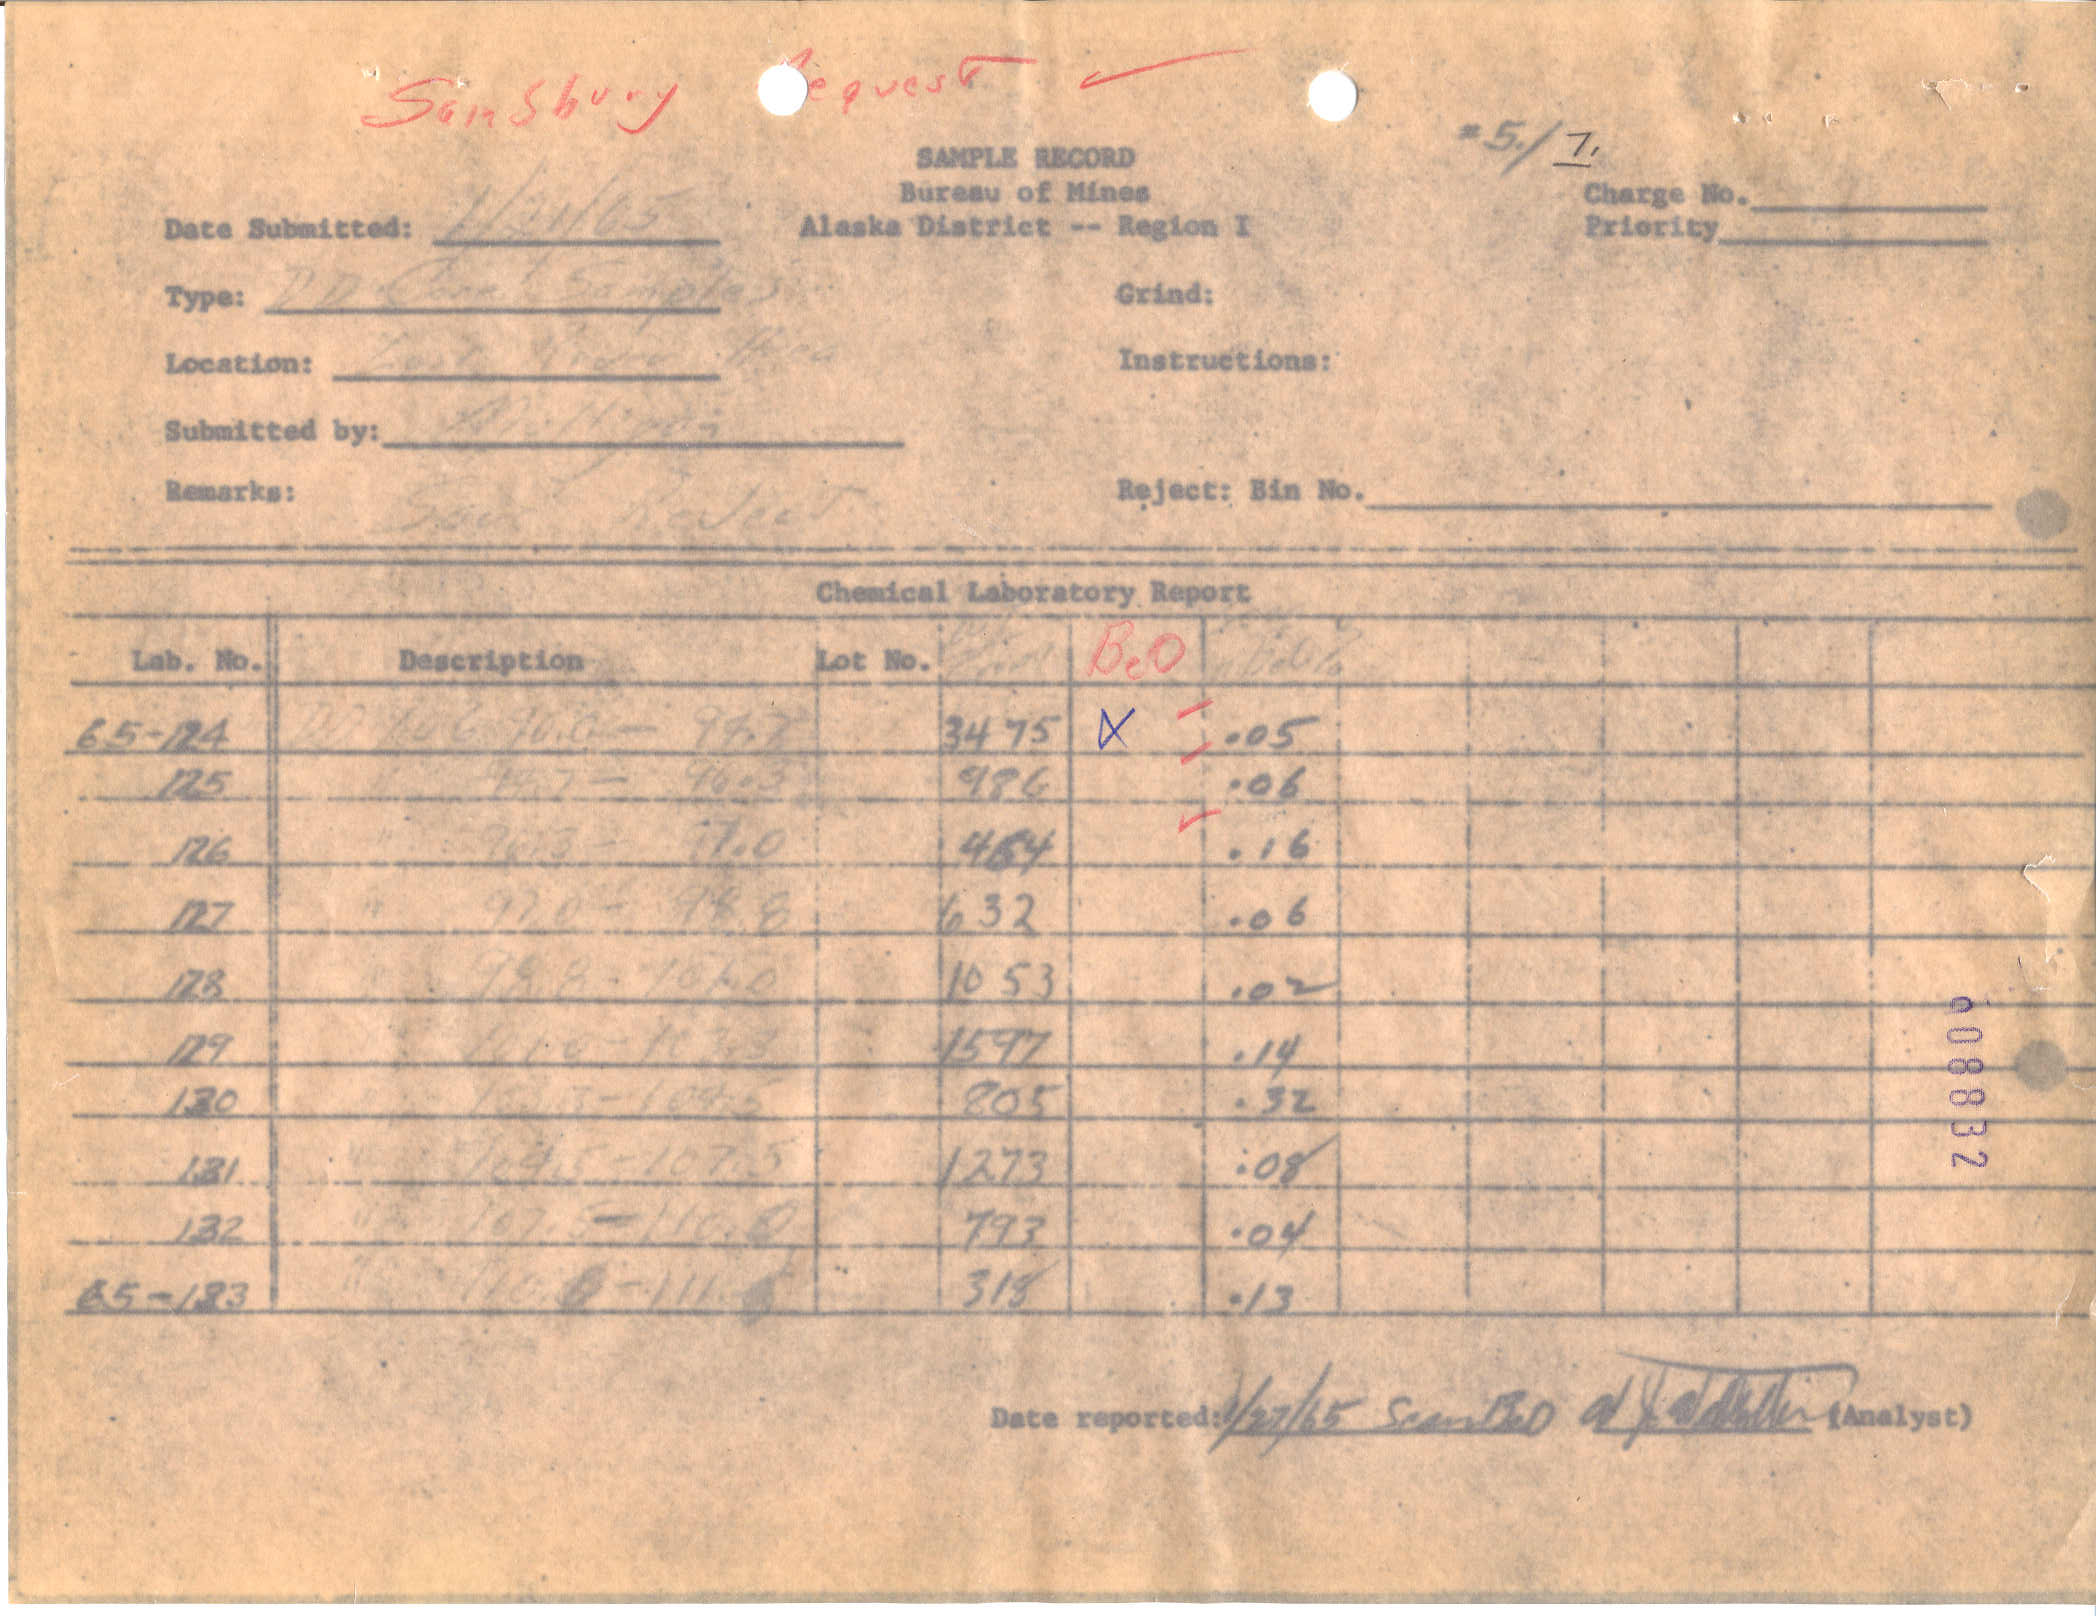 Sainsbury Request ✓
#5./7.
SAMPLE RECORD
Bureau of Mines
Alaska District -- Region I
Charge No.
Priority
Date Submitted: 1/21/65
Type: DD Core Samples
Location: Lost River Area
Submitted by: Mulligan
Grind:
Instructions:
Remarks: Save Reject
Reject: Bin No.
Chemical Laboratory Report
Lab. No. Description Lot No. BeO BeO%
65-124 94.7 3475 .05
125 " 94.7 - 96.3 986 .06
126 " 96.3 - 97.0 464 .16
127 " 97.0 - 98.8 632 .06
128 " 98.8 - 101.0 1053 .02
129 101.0 - 103.3 1597 .14
130 103.3 - 104.5 805 .32
131 " 104.5 - 107.5 1273 .08
132 " 107.5 - 110.0 793 .04
65-133 " 318 .13
Date reported: 1/27/65 BeO (Analyst)
008832